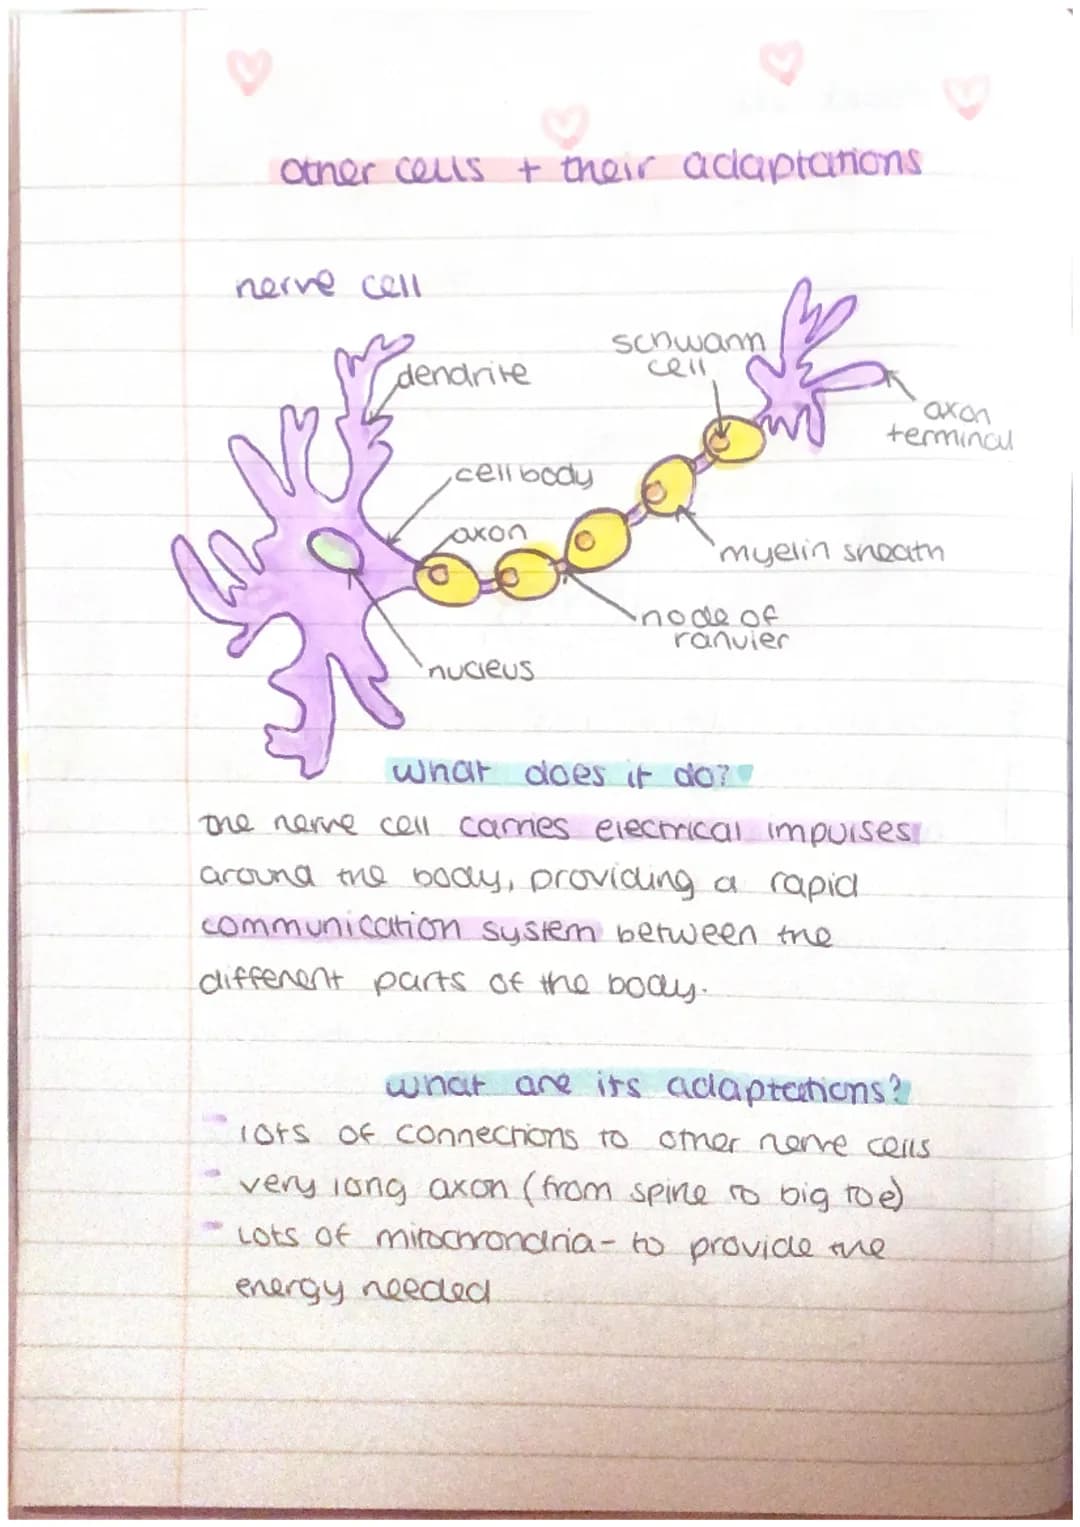 other cells + their adaptations
nerve cell
dendrite
schwann
cell
axon
terminal
cell body
axon
myelin sheath
node of
ranvier
nucleus
what does it do?
the nerve cell carries electrical impulses
around the body, providing a rapid
communication system between the
different parts of the body.
what are its adaptations?
- lots of connections to other nerve cells
- very long axon (from spine to big toe)
- Lots of mitochrondria - to provide the
energy needed